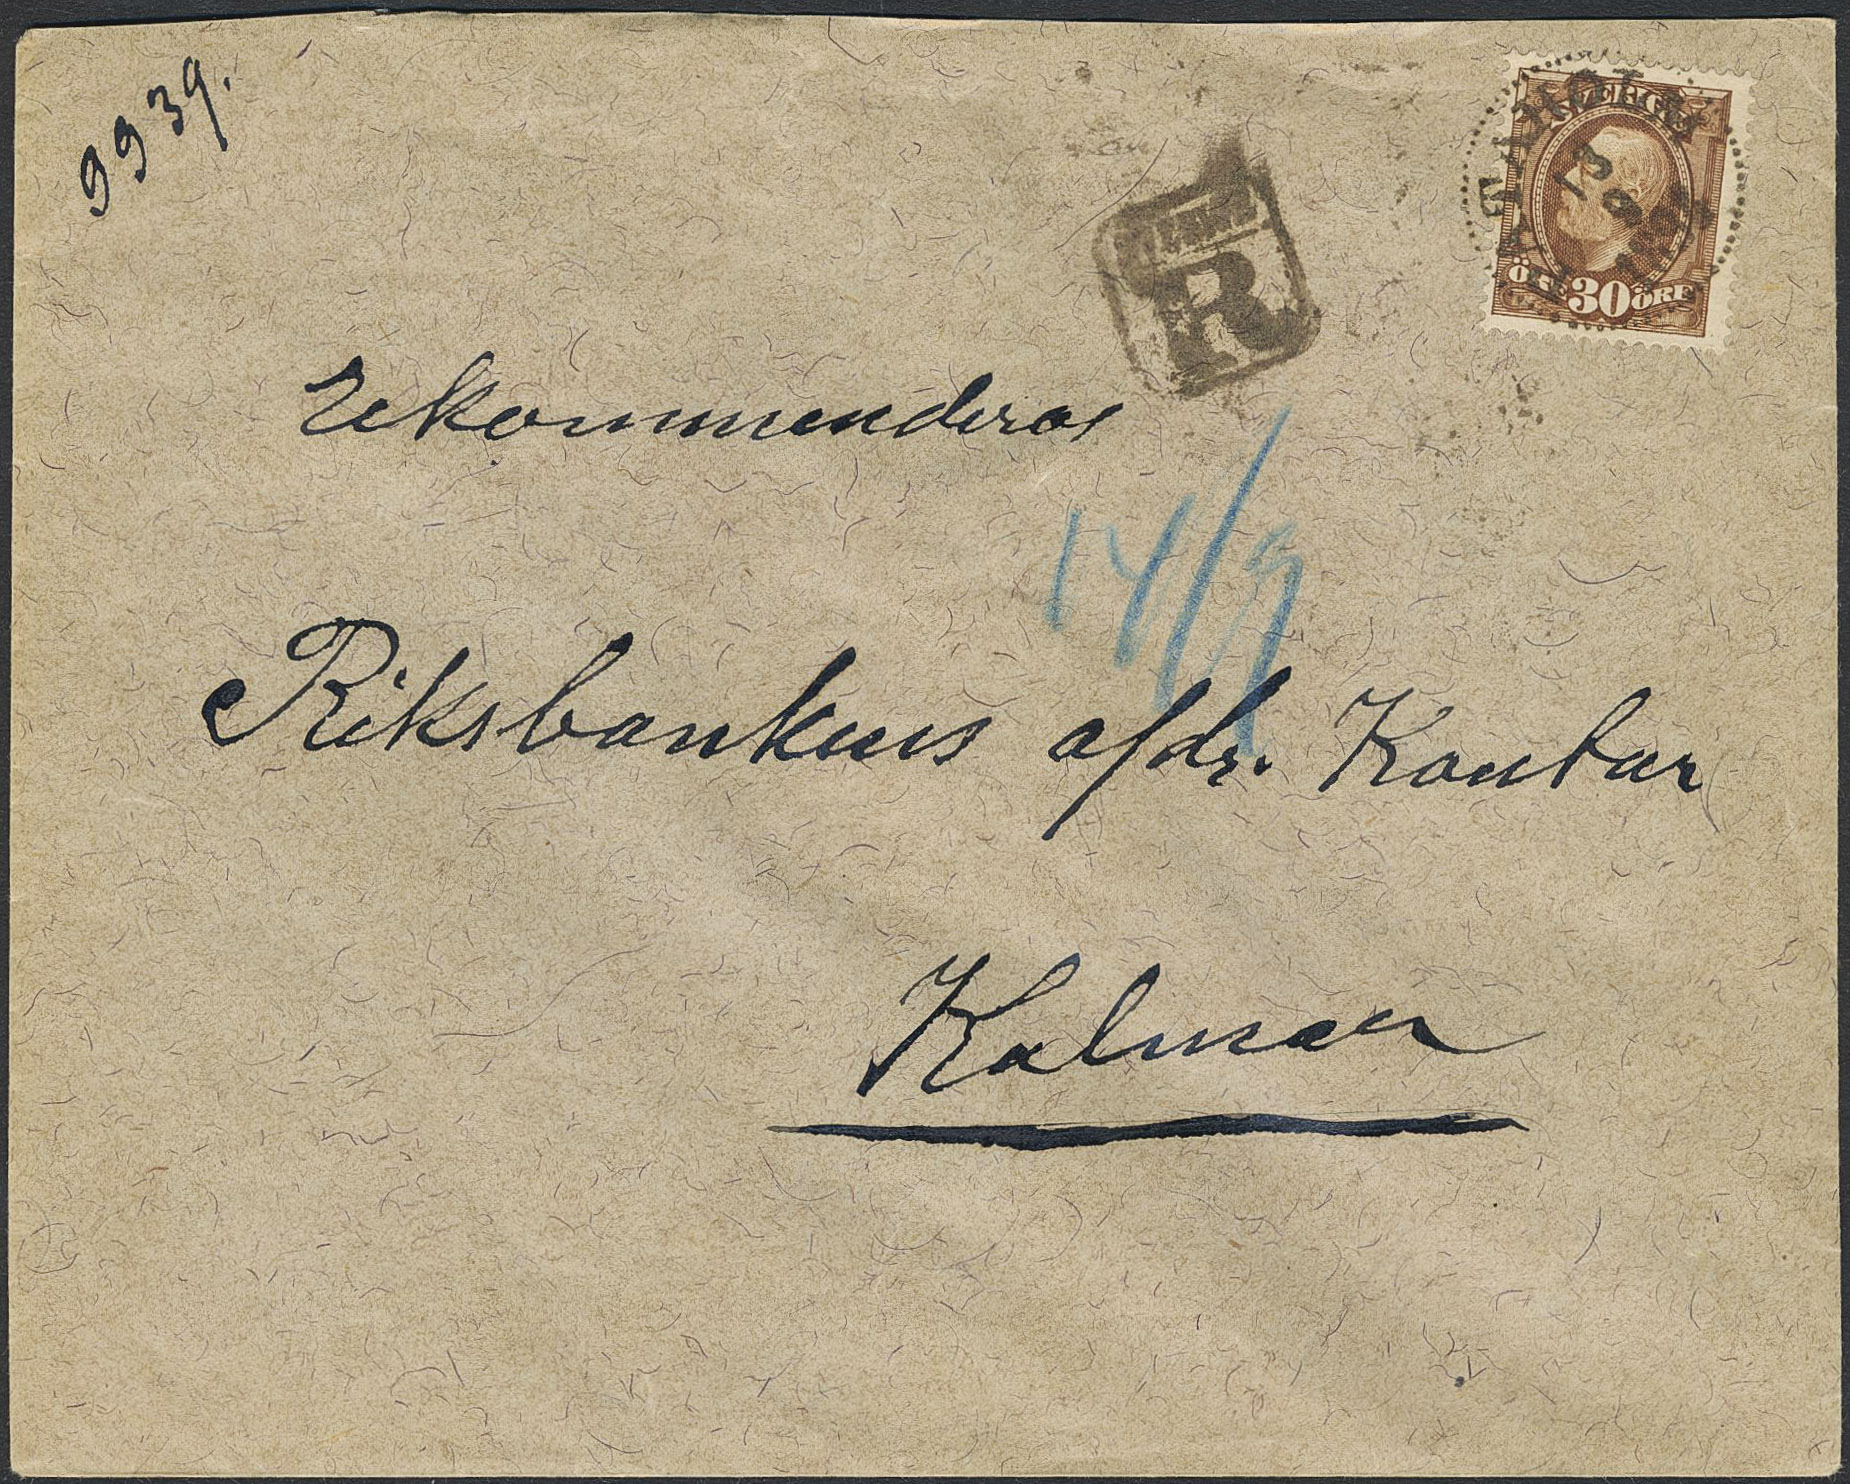 9939.
SVERIGE
ÖRE 30 ÖRE
R
rekommenderas
14/9
Riksbankens afdr. Kontor
Kalmar